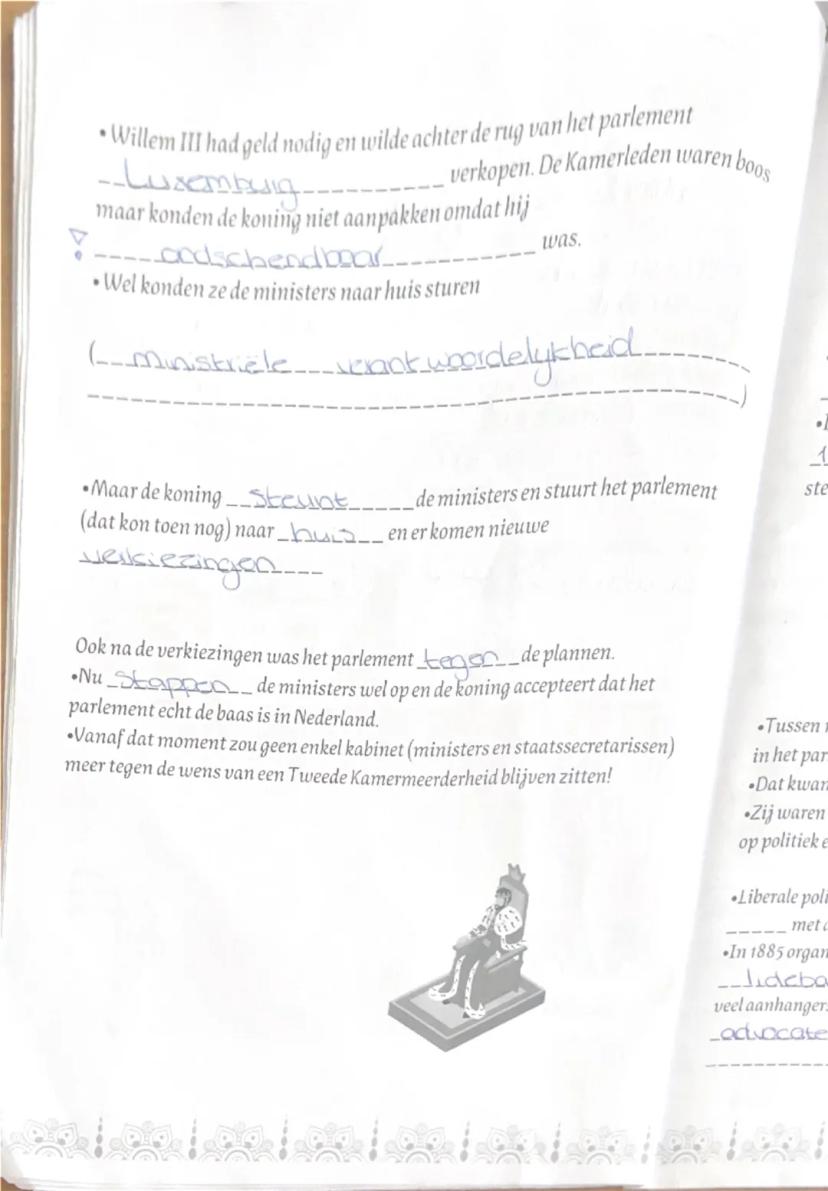 • Willem III had geld nodig en wilde achter de rug van het parlement
__Luxemburg____________ verkopen. De Kamerleden waren boos
maar konden de koning niet aanpakken omdat hij
! _____ondschendbaar____________ was.
• Wel konden ze de ministers naar huis sturen
(___ministriële___verantwoordelijkheid__________
________________________________________)
•Maar de koning __steunt______de ministers en stuurt het parlement
(dat kon toen nog) naar _huis__ en er komen nieuwe
verkiezingen____
Ook na de verkiezingen was het parlement _tegen__de plannen.
•Nu _stappen__ de ministers wel op en de koning accepteert dat het
parlement echt de baas is in Nederland.
•Vanaf dat moment zou geen enkel kabinet (ministers en staatssecretarissen)
meer tegen de wens van een Tweede Kamermeerderheid blijven zitten!
1
ste
•Tussen
in het par
•Dat kwam
•Zij waren
op politiek e
•Liberale poli
_____ met
•In 1885 organ
veel aanhanger
_advocate